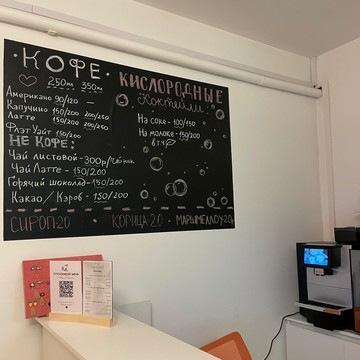 · КОФЕ ·
250мл 350мл
Американо 90/120 —
Капучино 150/200 200/250
Латте 150/200 200/250
Флэт Уайт 150/200
НЕ КОФЕ:
Чай листовой - 300р/Чайник
Чай Латте - 150/200
Горячий шоколад - 150/200
Какао / Кэроб - 150/200
КИСЛОРОДНЫЕ
Коктейли
На соке - 100/150
На молоке - 150/200
СИРОП 20 · КОРИЦА 20 · МАРШМЕЛЛОУ 20